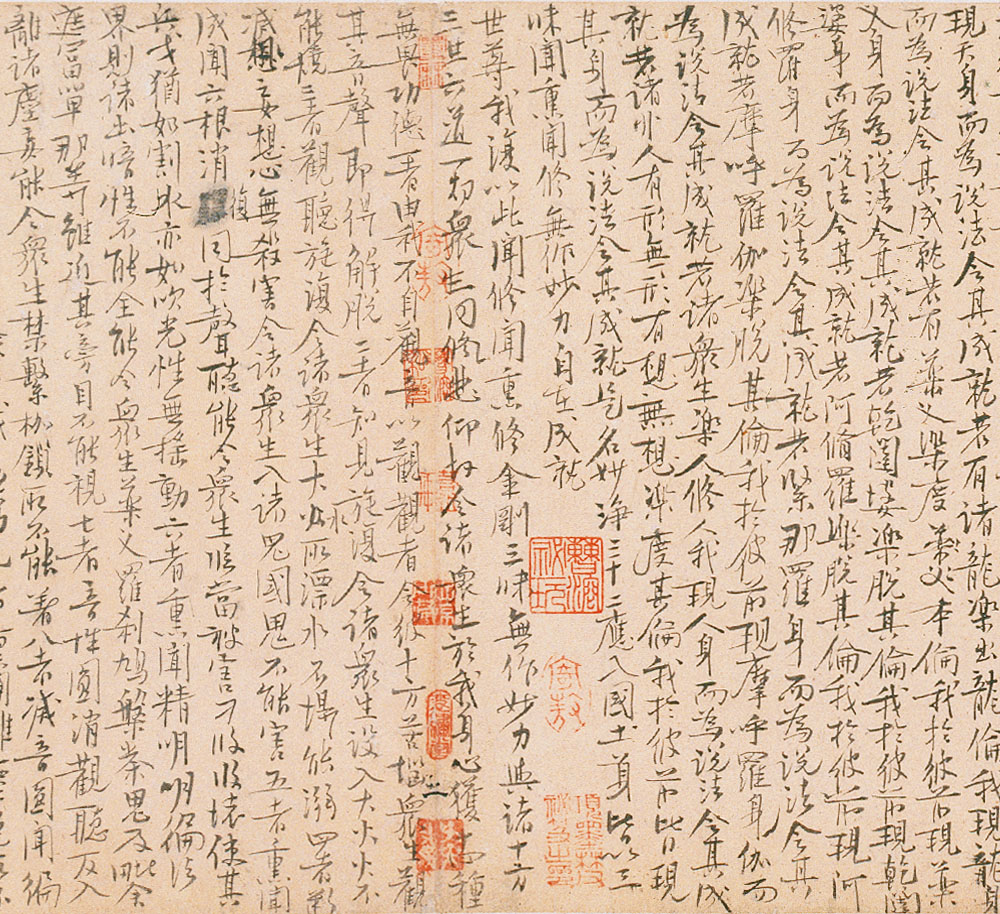 現天身而為說法令其成就若有諸龍樂出龍倫我現龍身
而為說法令其成就若有藥叉樂度本倫我於彼前現藥
叉身而為說法令其成就若乾闥婆樂脫其倫我於彼前現乾闥
婆身而為說法令其成就若阿脩羅樂脫其倫我於彼前現阿
脩羅身而為說法令其成就若緊那羅身而為說法令其
成就若摩呼羅伽樂脫其倫我於彼前現摩呼羅身伽而
為說法令其成就若諸眾生樂人修人我現人身而為說法令其成
就若諸非人有形無形有想無想樂度其倫我於彼前皆現
其身而為說法令其成就是名妙淨三十二應入國土身皆以三
昧聞熏聞修無作妙力自在成就
曹溶秘玩
項墨林父秘笈之印
世尊我復以此聞修聞熏修金剛三昧無作妙力與諸十方
三世六道一切眾生同悲仰故令諸懷生於我身心獲十四種
無畏功德一者由我不自觀音以觀觀者令彼十方苦惱眾生觀
其音聲即得解脫二者知見旋復令諸眾生設入大火火不
能燒三者觀聽旋復令諸眾生大水所漂水不能溺四者斷
滅妄想心無殺害令諸眾生入諸鬼國鬼不能害五者熏聞
成聞六根消復同於聲聽能令眾生臨當被害刀段段壞使其
兵戈猶如割水亦如吹光性無搖動六者熏聞精明明徧法
界則諸幽暗性不能全能令眾生藥叉羅剎鳩槃荼鬼及毗舍
遮富單那等雖近其旁目不能視七者音性圓消觀聽返入
離諸塵妄能令眾生禁繫枷鎖所不能著八者滅音圓聞徧